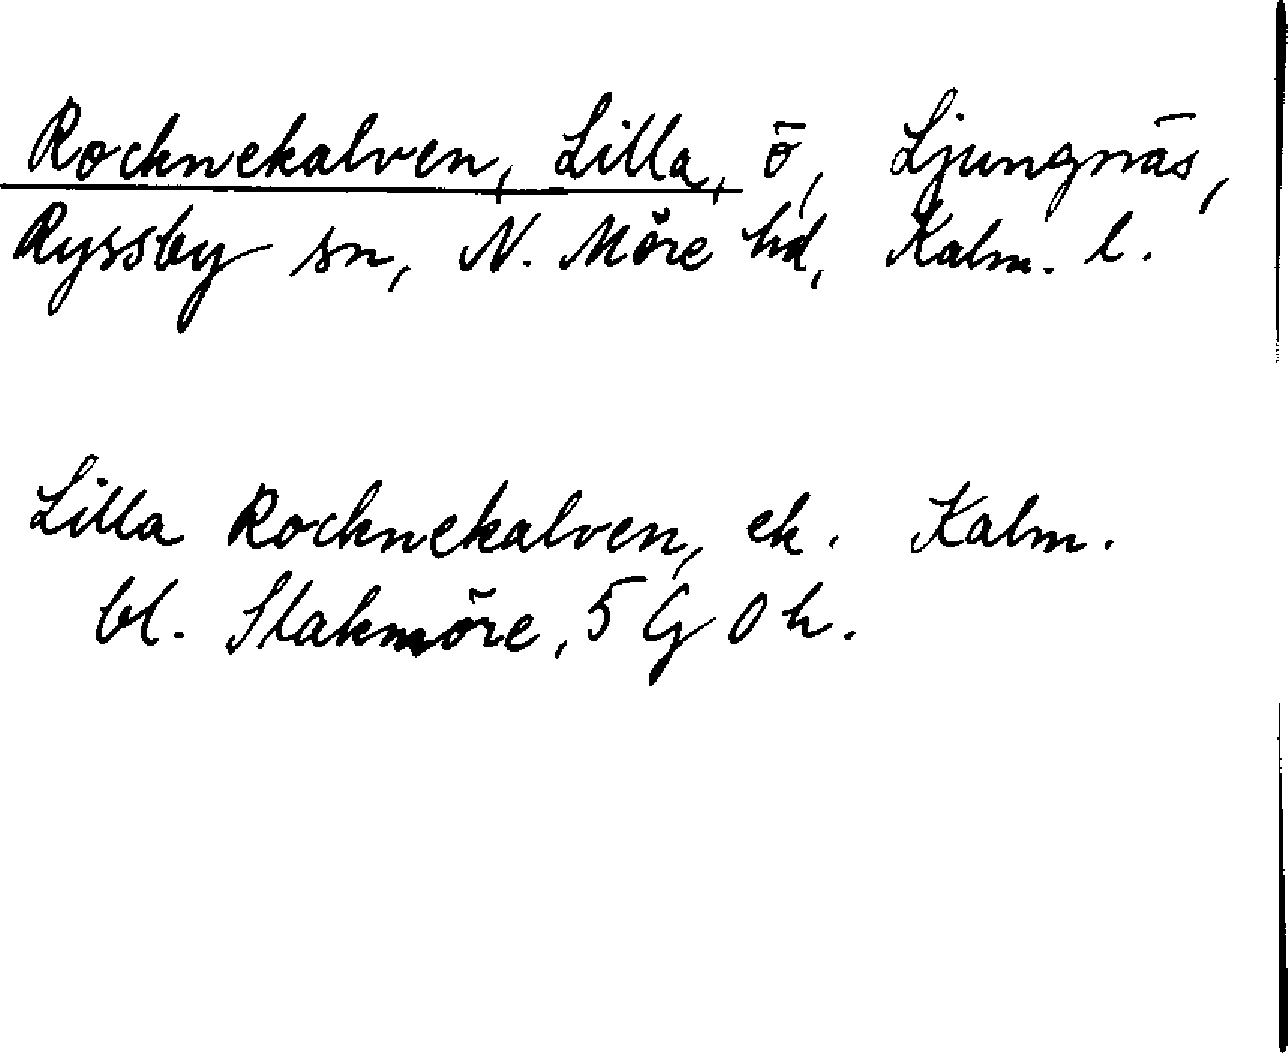 Rocknekalven, Lilla, ö, Ljungnäs,
Ryssby sn, N. Möre hd, Kalm. l.
Lilla Rocknekalven, ek. Kalm.
bl. Slakmöre, 5 G 0 h.